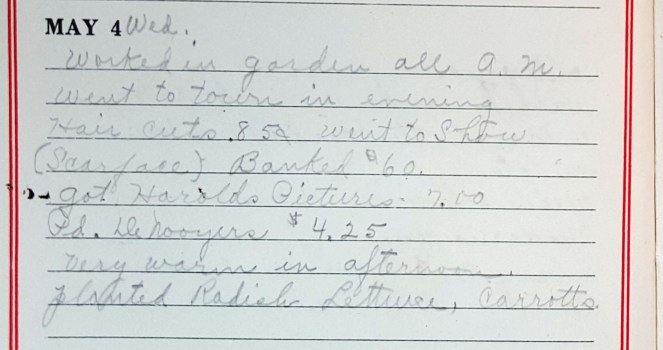 MAY 4 Wed.
Worked in garden all a.m.
Went to town in evening
Hair cuts .85¢ went to Show
(Scarface) Banked $60.
got Harolds Pictures. 7.00
Pd. DeNooyers $4.25
Very warm in afternoon.
planted Radish Lettuce, Carrotts